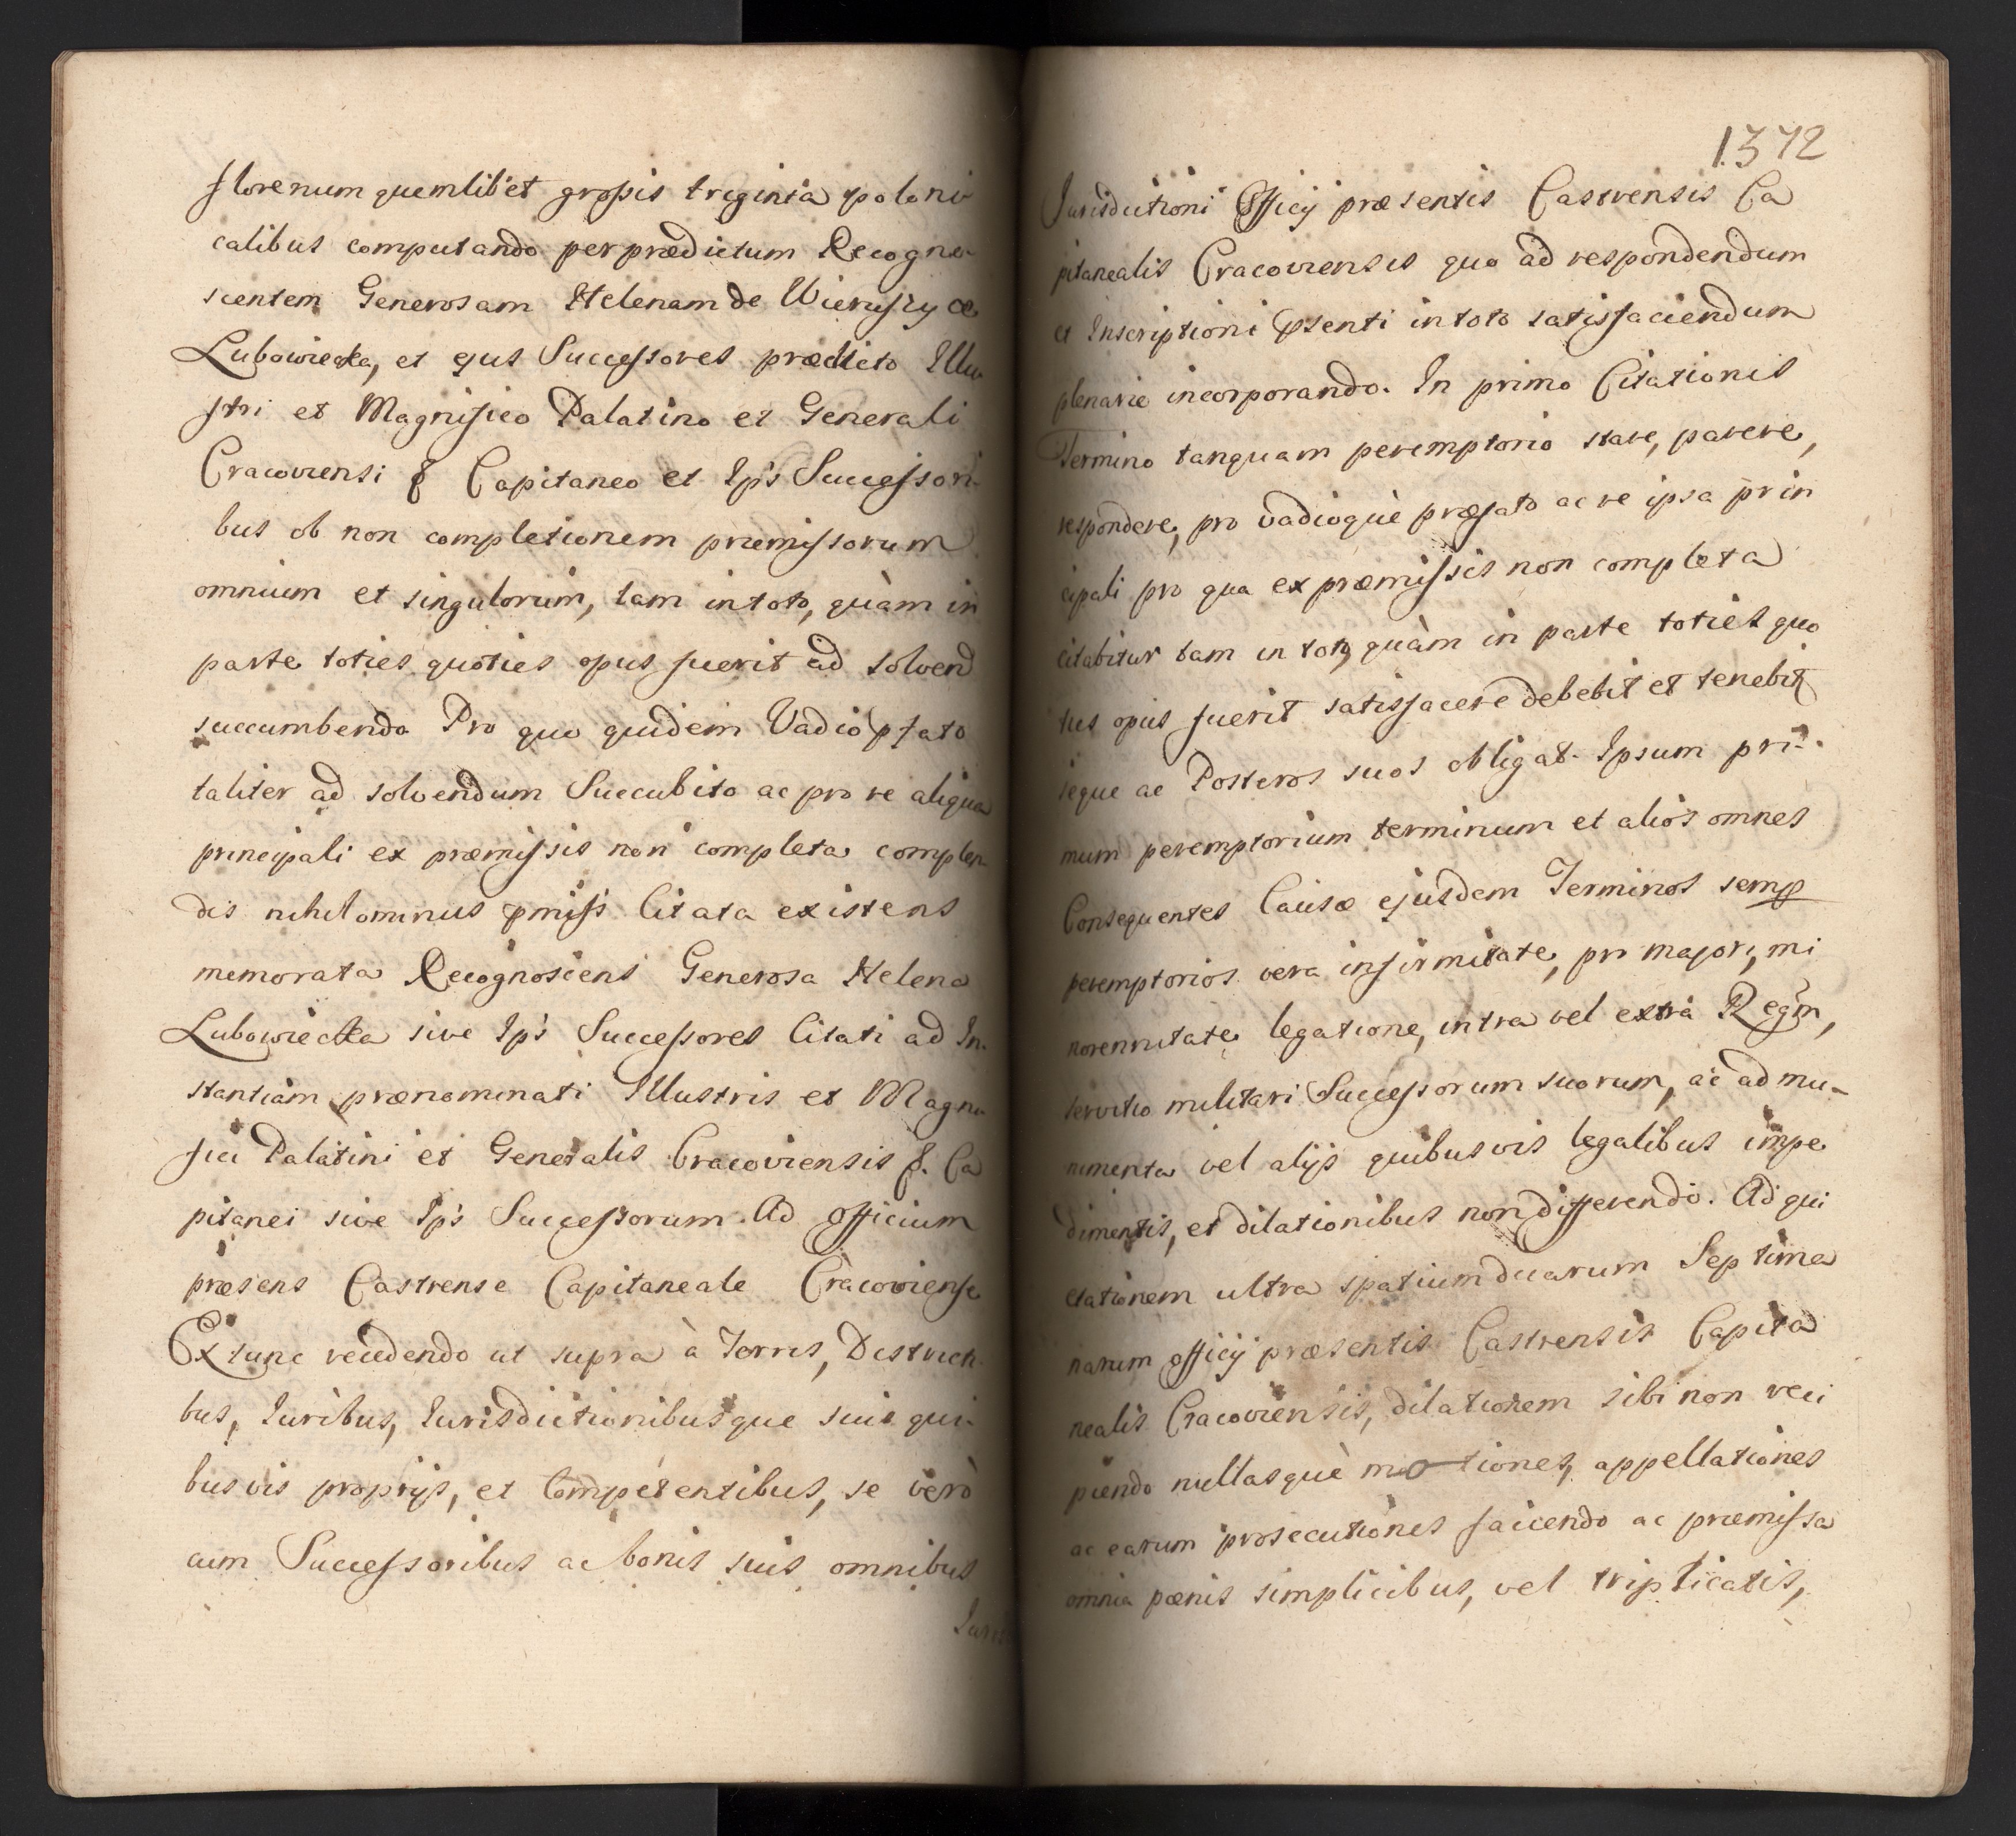 florenum quemlibet grossis triginta poloni
calibus computando per prædictum Recogno-
scentem Generosam Helenam de Wierussyce
Lubowiecka, et ejus Successores prædicto Illu
stri et Magnifico Palatino et Generali
Cracoviensi & Capitaneo et Ips Successori-
bus ob non completionem præmissorum
omnium et singulorum, tam in toto, quàm in
parte toties quoties opus fuerit ad solvend
succumbendo Pro quo quidem Vadio pfato
taliter ad solvendum Succubito ac pro re aliqua
principali ex præmissis non completa complen
dis nihilominus pmiss Citata existens
memorata Recognoscens Generosa Helena
Lubowiecka sive Ips Successores Citati ad In-
stantiam prænominati Illustris et Magni
fici Palatini et Generalis Cracoviensis &. Ca
pitanei sive Ips Successorum. Ad officium
præsens Castrense Capitaneale Cracoviense
Ex tunc recedendo ut supra à Terris, Districti
bus, Iuribus, Iurisdictionibusque suis qui-
busvis proprijs, et Competentibus, se verò
cum Successoribus ac bonis suis omnibus
Juris
1372
Jurisdictioni Officij præsentis Castrensis Ca
pitanealis Cracoviensis quo ad respondendum
et Inscriptioni psenti in toto satisfaciendum
plenarie incorporando. In primo Citationis
Termino tanquam peremptorio stare, parere,
respondere, pro vadioquè præfato ac re ipsa prin
cipali pro qua ex præmissis non completa
citabitur tam in toto, quàm in parte toties quo
ties opus fuerit satisfacere debebit et tenebit
seque ac Posteros suos obligat. Ipsum pri-
mum peremptorium terminum et alios omnes
Consequentes Causæ ejusdem Terminos semp
peremptorios vera infirmitate, pro majori, mi
norennitate legatione, intra vel extrà Regm,
servitio militari Successorum suorum, ac ad mu-
nimenta vel alijs quibusvis legalibus impe
dimentis, et dilationibus non differendo. Ad qui
etationem ultra spatium duarum Septima
narum officij præsentis Castrensis Capita
nealis Cracoviensis, dilationem sibi non reci
piendo nullasquè motiones, appellationes
ac earum prosecutiones faciendo ac præmissa
omnia pœnis simplicibus, vel triplicatis,